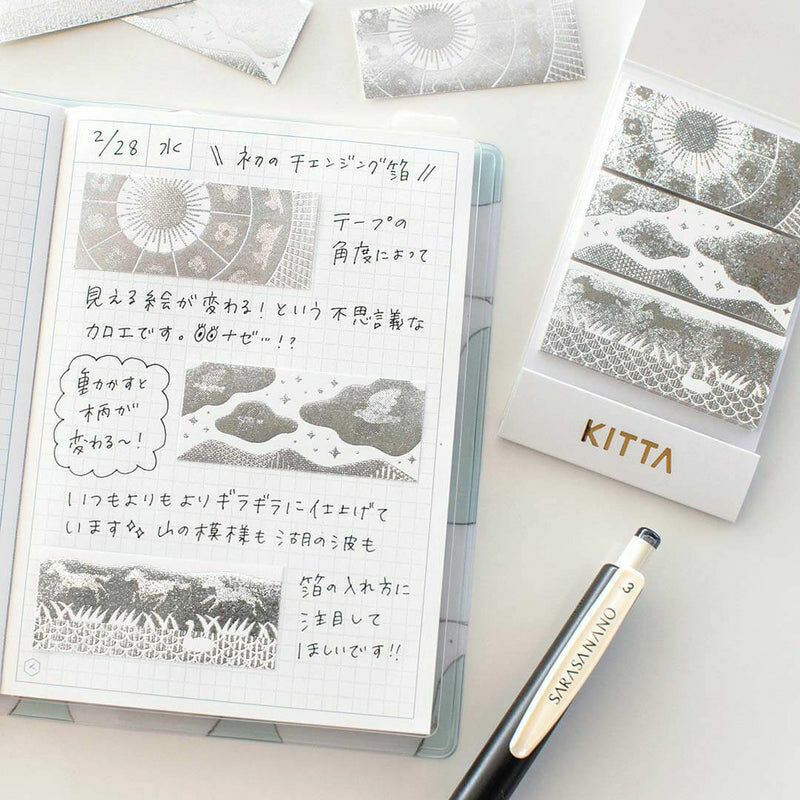 2/28 水 \\ 初の チェンジング箔 //
テープの
角度によって
見える絵が変わる！という不思議な
カロエです。 ナゼ…!?
動かすと
柄が
変わる〜！
いつもよりもよりギラギラに仕上げて
います 山の模様も 湖の波も
箔の入れ方に
注目して
ほしいです!!
KITTA
SARASA NANO
3